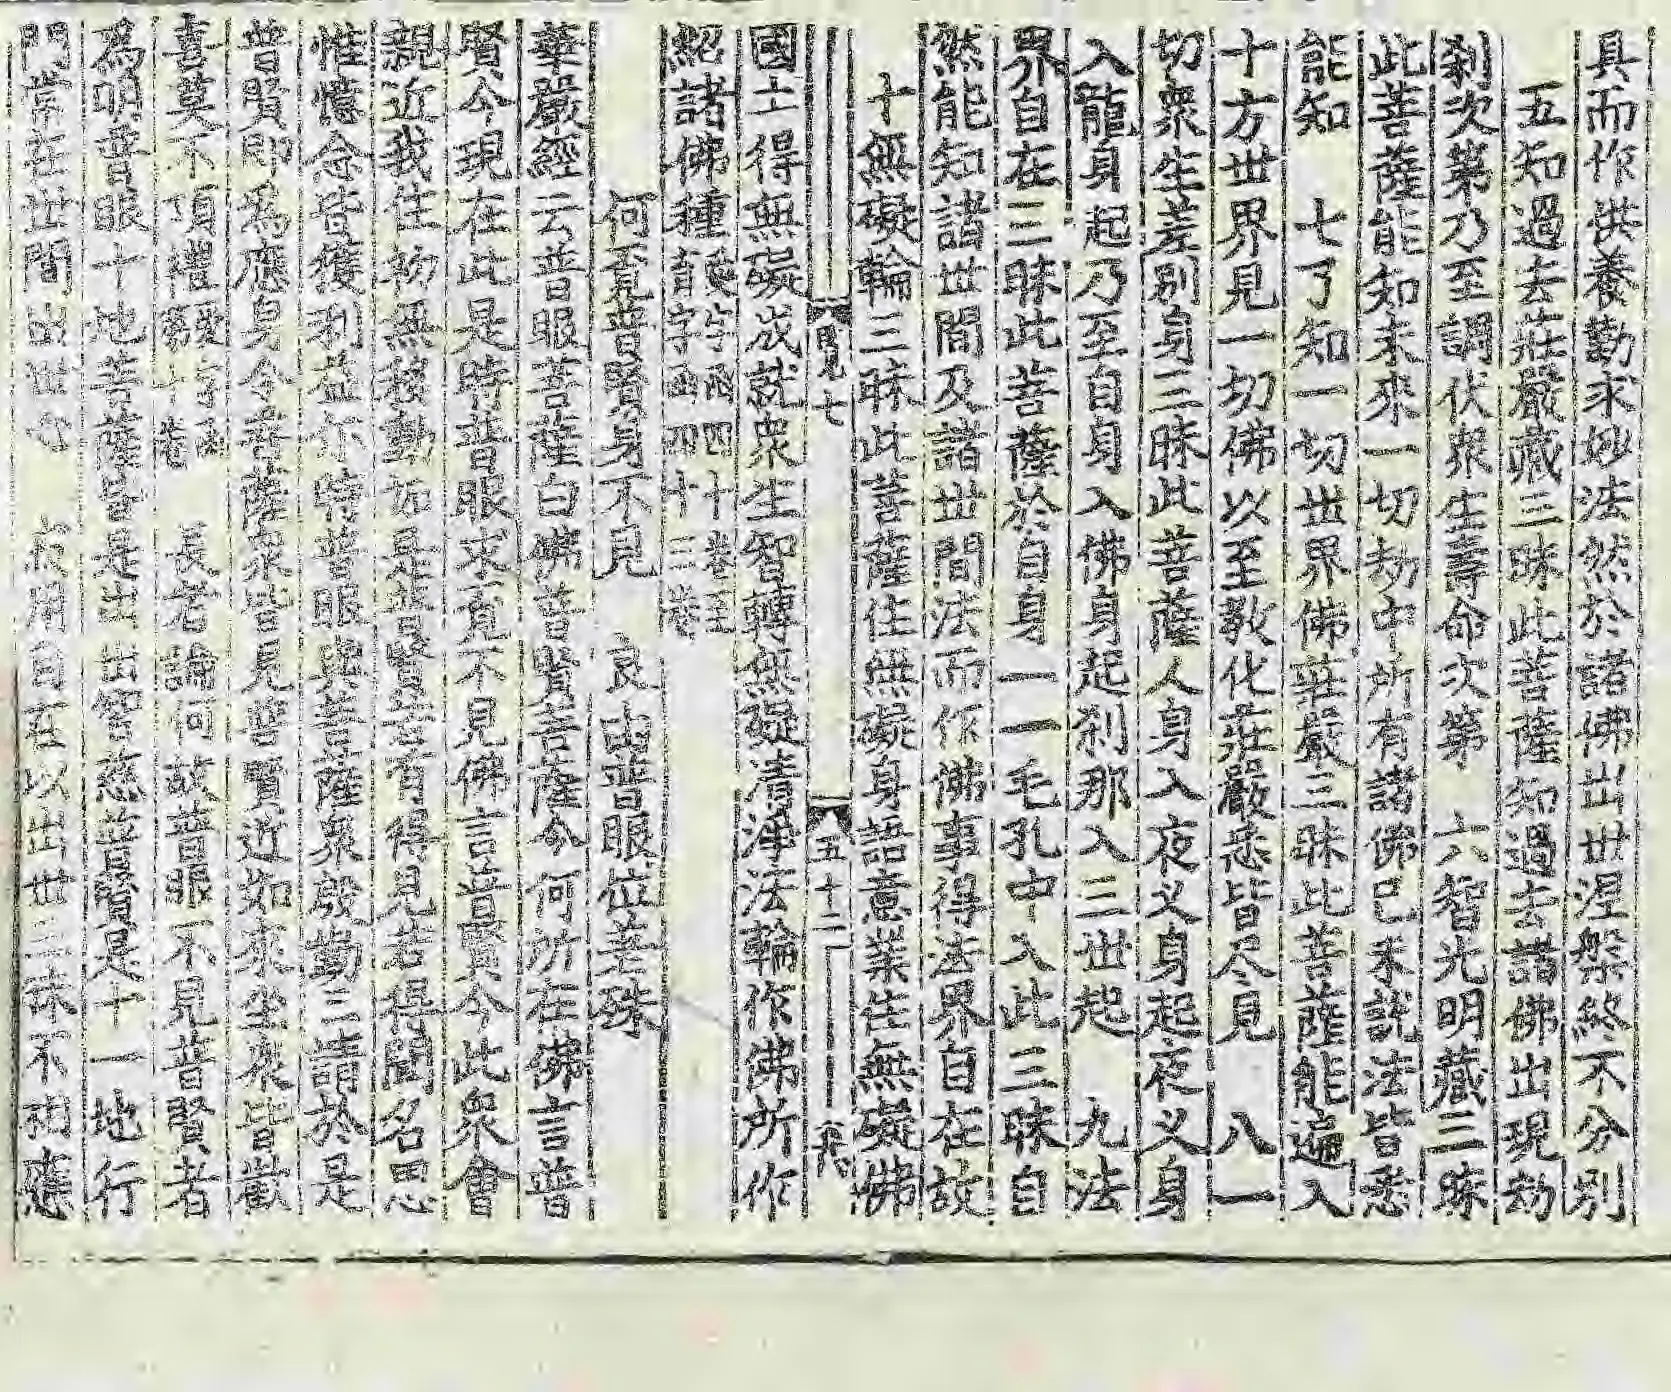 具而作供養勤求妙法然於諸佛出世涅槃終不分別
五知過去莊嚴藏三昧此菩薩知過去諸佛出現劫
刹次第乃至調伏衆生壽命次第　六智光明藏三昧
此菩薩能知未來一切劫中所有諸佛已未說法皆悉
能知　七了知一切世界佛莊嚴三昧此菩薩能遍入
十方世界見一切佛以至教化莊嚴悉皆尽見　八一
切衆生差別身三昧此菩薩人身入夜义身起夜义身
入龍身起乃至自身入佛身起刹那入三世起　九法
界自在三昧此菩薩於自身一一毛孔中入此三昧自
然能知諸世間及諸世間法而作佛事得法界自在故
十無礙輪三昧此菩薩住無礙身語意業住無礙佛
五十二
國土得無礙成就衆生智轉無礙清淨法輪作佛所作
紹諸佛種
四十卷至
字函四十三卷
何覓普賢身不見　良由普眼位差殊
華嚴經云普眼菩薩白佛普賢菩薩今何所在佛言普
賢今現在此是時普眼求覓不見佛言普賢今此衆會
親近我住初無移動如是普賢若有得見若得聞名思
惟憶念皆獲利益尒時普眼與菩薩衆殷勤三請於是
普賢即爲應身令菩薩衆皆見普賢近如來坐衆皆歡
喜莫不頂禮　長者論問何故普眼不見普賢者
爲明普眼十地菩薩皆是出出智慈普賢是十一地行
門常在世間　自在以出世三昧不相應